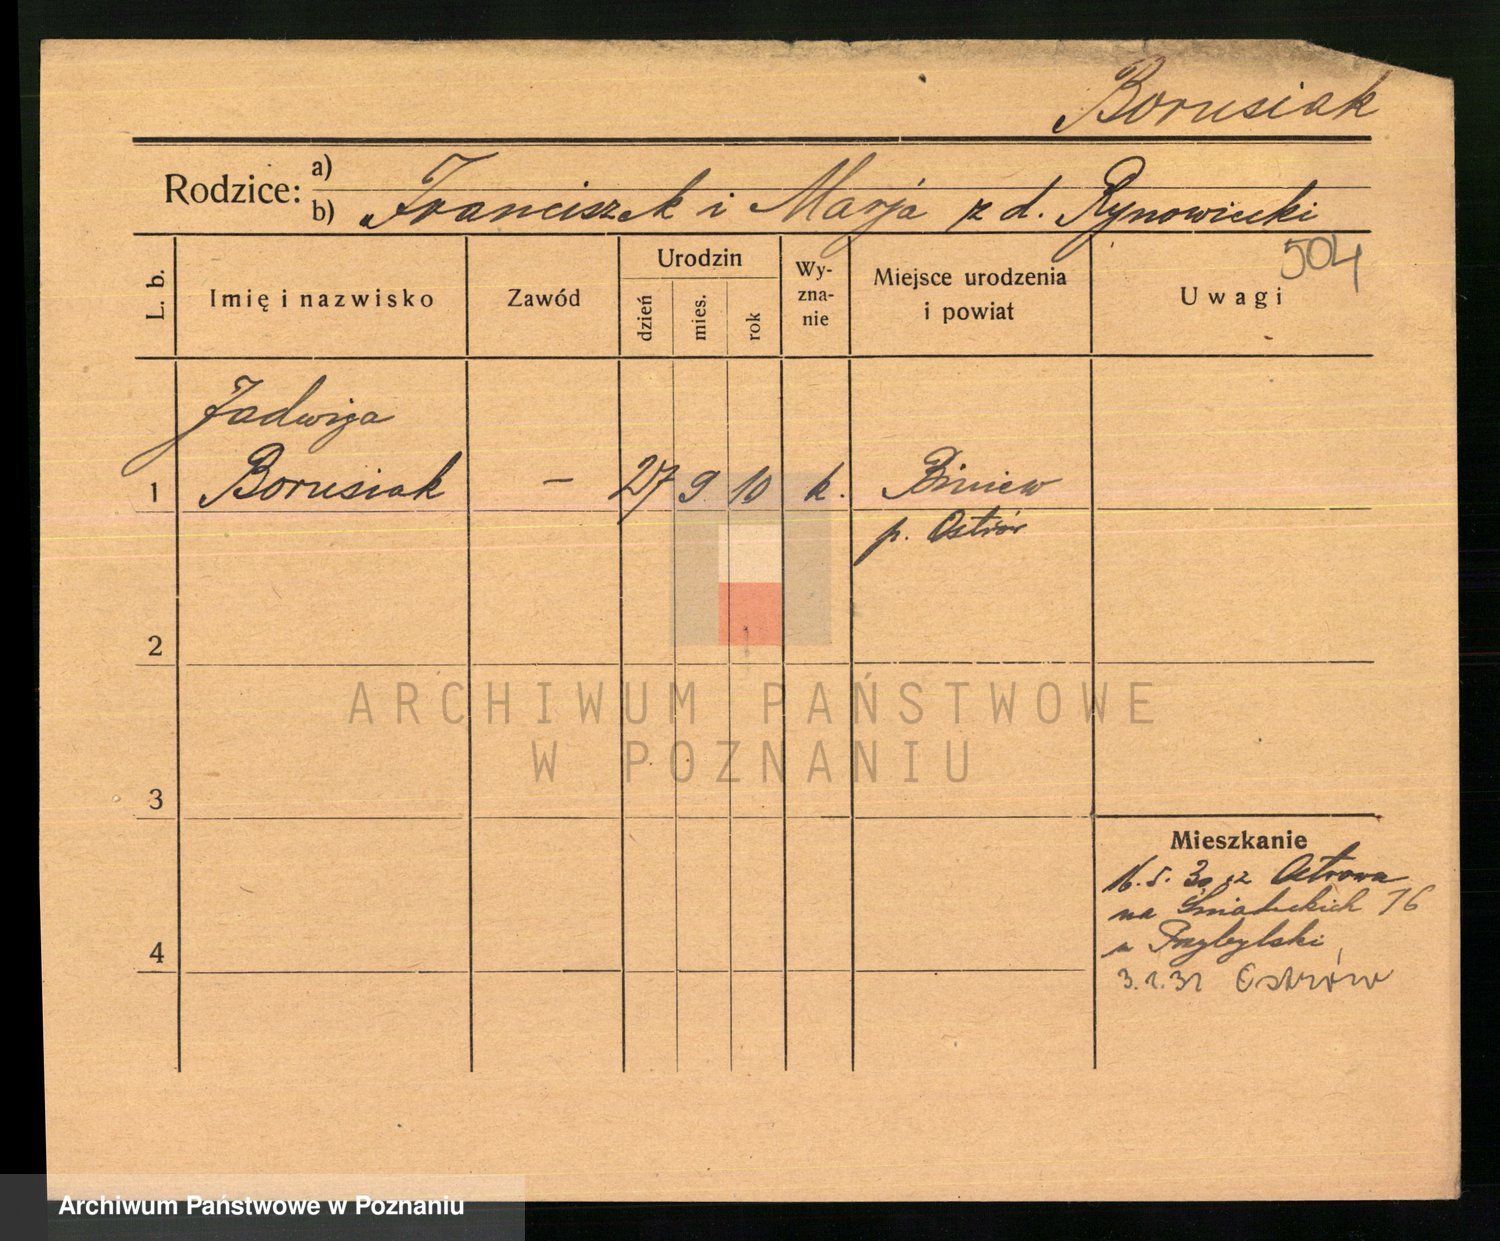 Borusiak
Rodzice: a)
b) Franciszek i Marja z d. Rynowiecki
504
L. b.
Imię i nazwisko
Zawód
Urodzin
dzień
mies.
rok
Wy-
zna-
nie
Miejsce urodzenia
i powiat
Uwagi
Jadwiga
1 Borusiak – 27 9 10 k. Biniew
p. Ostrów
2
ARCHIWUM PAŃSTWOWE
W POZNANIU
3
Mieszkanie
16.5.30 z Ostrowa
na Śniadeckich 76
4
u Przybylski
3.1.31 Ostrów
Archiwum Państwowe w Poznaniu